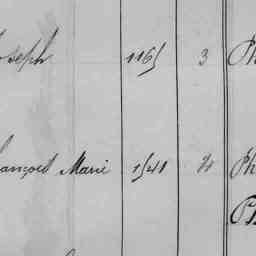 oseph 1165 3 Ph
rançois Marie 1541 4 Ph